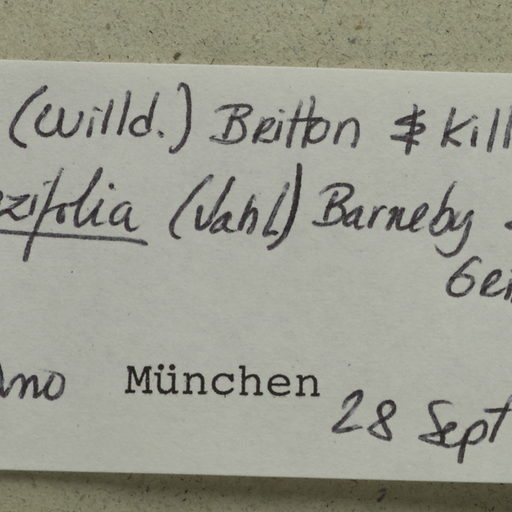 (Willd.) Britton & Kill
zifolia (Vahl) Barneby &
Gei
Ano München 28 Sept